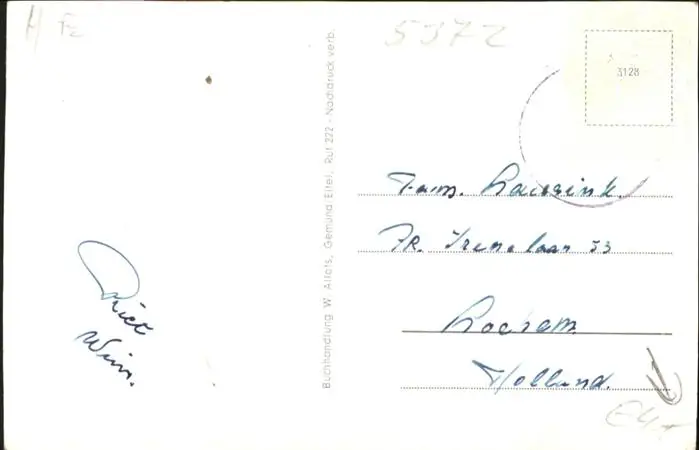 H Fz
5372
3128
Buchhandlung W. Allots, Gemünd Eifel, Ruf 222 - Nachdruck verb.
Fam.
Pr. Irenelaan 33
Lochem.
Holland.
Piet
Wim.